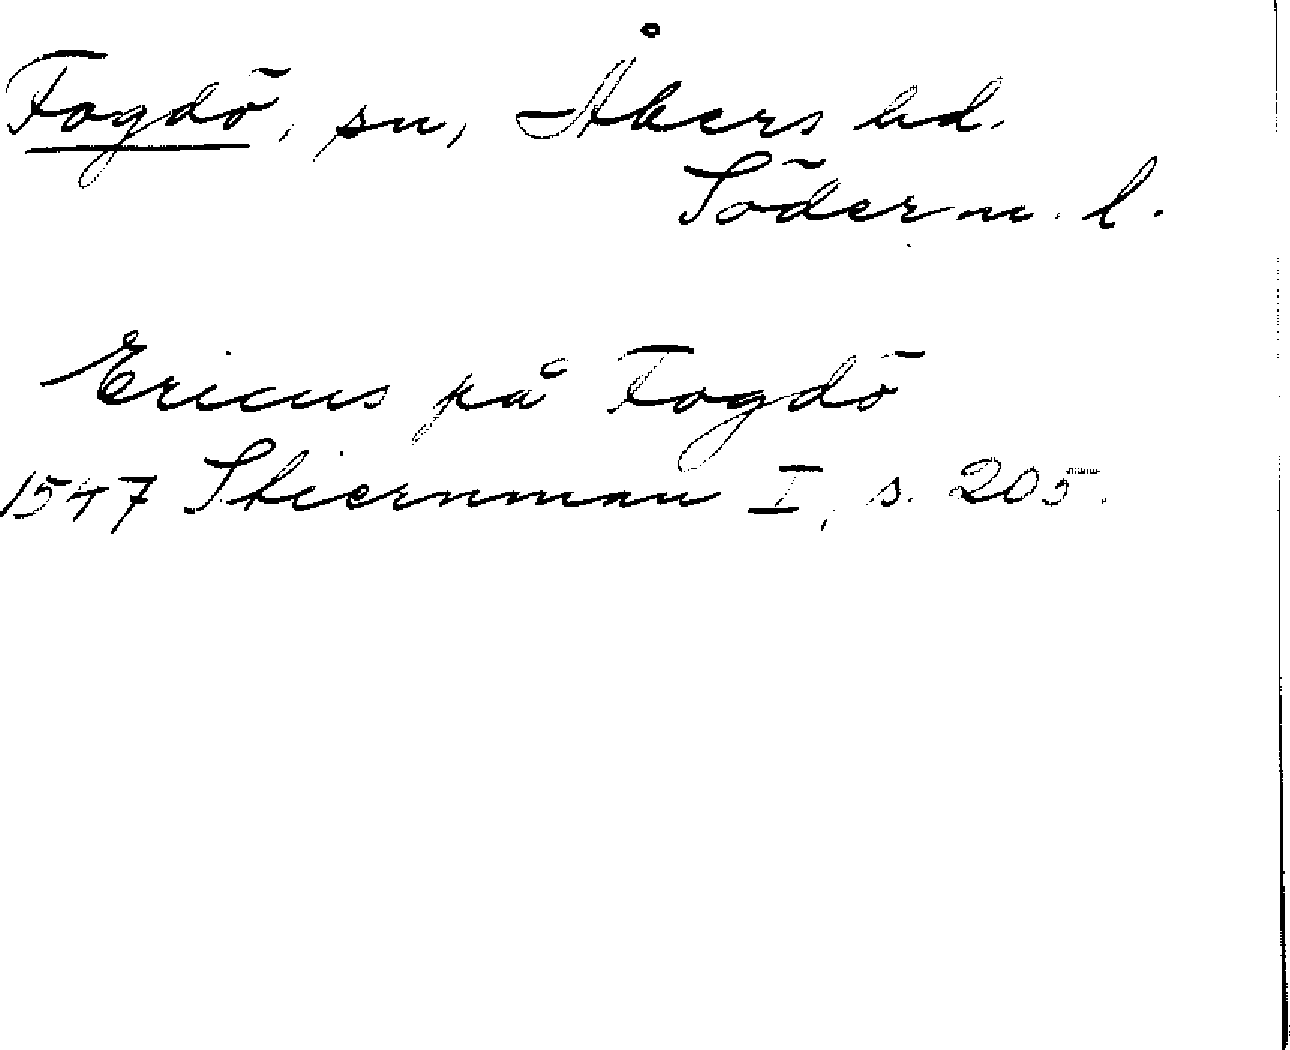 Fogdö, sn, Åkers hd.
Söderm. l.
Ericus på Fogdö
1547 Stiernman I, s. 205.